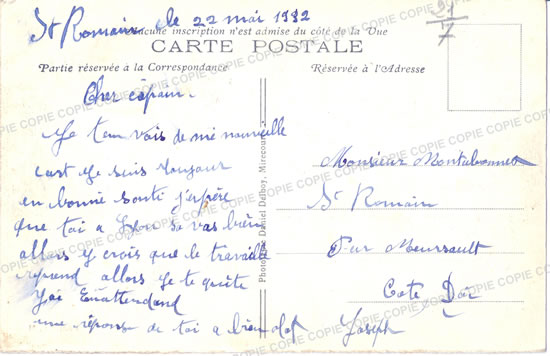 St Romain le 22 mai 1932
Aucune inscription n'est admise du côté de la Vue
CARTE POSTALE
Partie réservée à la Correspondance
Réservée à l'Adresse
91/7
Cher copain.
Je t'en vais de mé nouvelle
c'est je suis toujour
en bonne santé j'espère
que toi a Lyon sa vas bien
allors y crois que le travaille
reprend allors je te quite
J'ai Enattendand
une réponse de toi a bientot Joseph
Monsieur
St Romain
Par Meursault
Cote Dor
Daniel Delboy, Mirecourt
COPIE COPIE COPIE COPIE COPIE COPIE